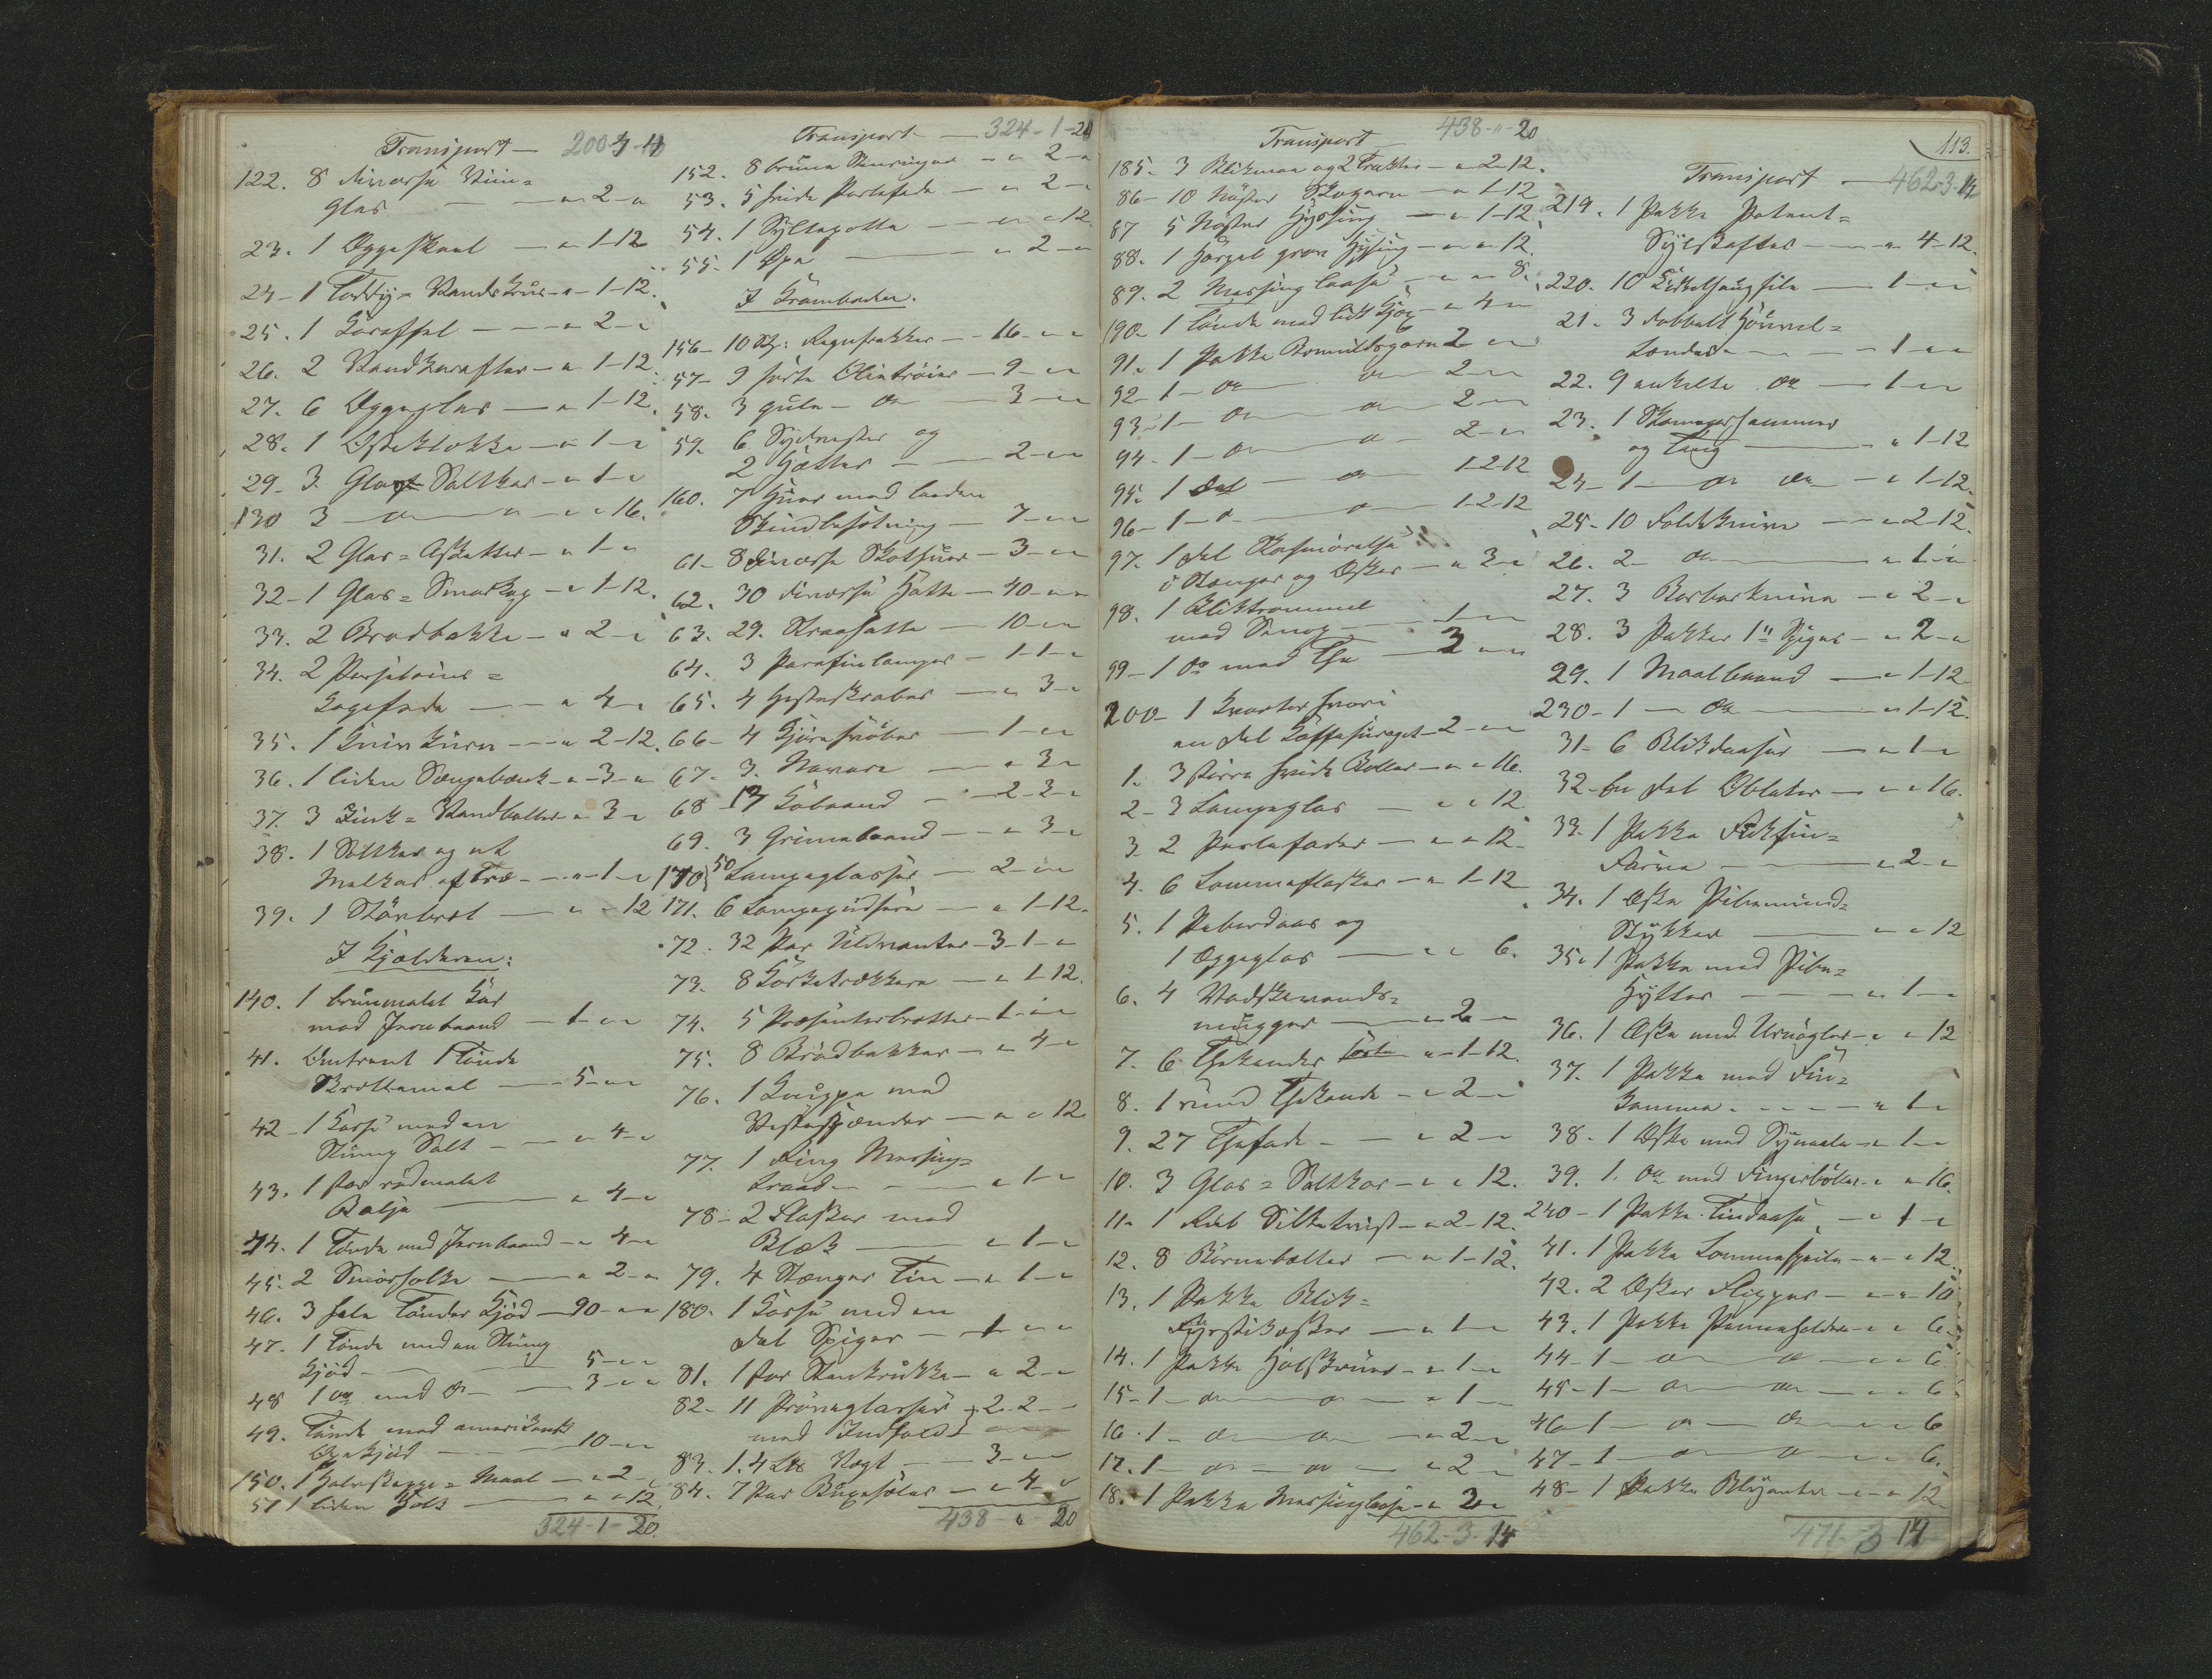 Transport — 200-4-4
122. 8 diverse Viin=
glas — " 2 - "
23. 1 Eggeskaal — " 1-12
24 - 1 Toddy= Vandkrus - " - 1-12.
25. 1 Karaffel — " 2 - "
26. 2 Vandkarafler — " 1-12.
27. 6 Eggeglas — " 1-12.
28. 1 Osteklokke — " 1 - "
29. 3 Glas Saltkar — " 1 - "
130 3 — do — " — " " 16.
31. 2 Glas= Asjetter — " 1 - "
32 - 1 Glas= Smørkop — " 1-12.
33. 2 Brødbakke — " 2 - "
34. 2 Porselains=
Kagefade — " 4 - "
35. 1 Kniv Kurv — " 2-12.
36. 1 liden Sengebænk - " - 3 - "
37. 3 Zink= Vandbøtter - " 3 - "
38. 1 Saltkar og et
Melkar af Træ — " - 1 - "
39. 1 Størbret — " - 12
I Kjælderen:
140. 1 brunmalet Kar
med Jernbaand — 1 - " "
41. Omtrent 1 Tønde
Skrottemel — 5 - " "
42 - 1 Kasse med en
Slump Salt — " 4 - "
43. 1 stor rødmalet
Balje — " 4 - "
44. 1 Tønde med Jernbaand — " 4 - "
45. 2 Smørholke — " 2 - "
46. 3 hele Tønder Kjød — 90 - " "
47. 1 Tønde med en Slump
Kjød — 5 - " "
48 1 do med do — 3 - " "
49. Tønde med amerikansk
Oxekjød — 10 - " "
150. 1 Halvskjeppe= Maal — " 2 - "
51 1 liden Holk — " " 12.
324-1-20.
Transport — 324-1-20
152. 8 brune Stenringer — " 2 - "
53. 5 hvide Postefade — " 2 - "
54. 1 Syltepotte — " " 12
55. 1 Øse — " 2 - "
I Kramboden.
156 - 10 Stk: Regnfrakker — 16 - " "
57 - 9 sorte Olietrøier — 9 - " "
58. 3 gule — do — 3 - " "
59. 6 Sydvester og
2 Hætter — 2 - " "
160. 7 Huer med loden
Skindbesætning — 7 - " "
61 - 8 diverse Skothuer — 3 - " "
62. 30 diverse Hatte — 40 - " "
63. 29. Straahatte — 10 - " "
64. 3 Parafinlamper — 1-1 - "
65. 4 Hesteskraber — " 3 - "
66 - 4 Gjørehvøber — 1 - " "
67. 3. Navere — " 3 -
68 - 17 Købaand — 2-3 - "
69. 3 Grimebaand — " 3 - "
170 50 Lampeglasser — 2 - " "
171. 6 Lampepudsere — " 1-12.
72. 32 Par Uldvanter - 3-1 - "
73. 8 Korketrækkere — " 1-12.
74. 5 Præsenterbretter — 1 - " "
75. 8 Brødbakker — " 4 - "
76. 1 Knippe med
Vestespænder — " " 12
77. 1 Ring Messing=
traad — " 1 - "
78 - 2 Flasker med
Blæk — " 1 - "
79. 4 Stænger Tin — " 1 - "
180. 1 Kasse med en
del Spiger — 1 - " "
81. 1 stor Stenkrukke — " 2 - "
82 - 11 Prøveglasser
med Indhold } 2-2 - "
83. 1. 4 Lod Vægt — 3 - "
84. 7 Par Buxeseler — " 4 - "
438 - " 20
Transport 438 - " - 20
185. 3 Blikmaa og 2 Trakter — " 2-12.
86 - 10 Nøster Skogarn — " 1-12
87 5 Nøster Hyssing — " 1-12.
88. 1 Haspel grov Hyssing — " " 12.
89. 2 Messinglaase — " " 8.
190 - 1 Tønde med lidt Kjøx — " 4 - "
91. 1 Pakke Bomuldsgarn 2 " "
92 - 1 - do do 2 - "
93 - 1 - do — do — 2 - "
94 - 1 - do — do — 2 - "
95. 1 del — do 1-2-12
96 - 1 - do — do 1-2-12
97. 1 del Skosmørelse
i Stanger og Æsker — " 3 - "
98. 1 Bliktrommel
med Senep — 1 - "
99 - 1 do med The — 3 - " "
200 - 1 Kvarter hvori
en del Kaffesuroget - 2 - " "
1. 3 større hvide Boller — " " 16.
2 - 3 Lampeglas — " " 12
3. 2 Postefader — " " 12 -
4. 6 Lommeflasker — " 1-12
5. 1 Peberdaas og
1 Eggeglas — " " 6.
6. 4 Vadskevands=
mugger — " 2 - "
7. 6 Thekander sorte — " - 1-12.
8. 1 rund Thekande — " 2 - "
9. 27 Thefade — " 2 - "
10. 3 Glas= Saltkar — " " 12.
11. 1 Rul Silketvist — " 2-12.
12. 8 Børnebælter — " 1-12.
13. 1 Pakke Blik=
Fyrstikæsker — " 1 - "
14. 1 Pakke Halskruus — " 1 - "
15 - 1 - do — do — " 1 -
16. 1 - do do — " 2 - "
17. 1 — do — do — " 2 - "
18. 1 Pakke Messinglaase - " 2 - "
462-3-14
113.
Transport — 462-3-14
219. 1 Pakke Patent=
Sylskafter — " 4-12.
220. 10 Sirkelsaugfile — 1 - " "
21. 3 dobbelt Høvvel=
tænder — 1 - " "
22. 9 enkelte do — 1 - " "
23. 1 Skomagerhammer
og Tang — " 1-12
24 - 1 — do do — " 1-12.
25 - 10 Foldeknive — " 2-12.
26. 2 - do — " 1 - "
27. 3 Barberknive — " 2 - "
28. 3 Pakker 1" Spiger — " 2 - "
29. 1 Maalbaand — " 1-12
230 - 1 — do — " 1-12.
31 - 6 Blikdaaser — " 1 - "
32 - En del Oblater — " " 16.
33. 1 Pakke Fuksin=
Farve — " 2 - "
34. 1 Æske Pibemund=
Stykker — " " 12
35. 1 Pakke med Pibe=
Hytter — " 1 - "
36. 1 Æske med Urnøgler — " " 12
37. 1 Pakke med Fin=
kamme — " 1 - "
38 - 1 Æske med Synaale — " 1 - "
39. 1. do med Fingerbøller — " " 16.
240 - 1 Pakke Tindaase — " 1 - "
41. 1 Pakke Lommespeile — " " 12.
42. 2 Æsker Knapper — " " 10
43. 1 Pakke Penneholdere — " " 6.
44 - 1 — do — do — " " 6.
45 - 1 — do — do — " " 6
46 - 1 — do — do — " " 6
47 - 1 — do — do — " " 6.
48 - 1 Pakke Blyanter — " " 12.
471-3-14